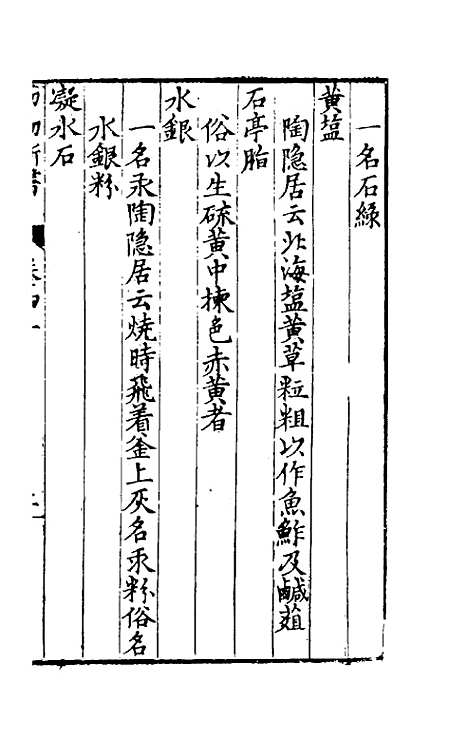 一名石綠
黄塩
陶隐居云北海塩黄草粒粗以作魚鮓及鹹菹
石亭脂
俗以生硫黄中揀色赤黄者
水銀
一名汞陶隐居云燒時飛着釜上灰名汞粉俗名
水銀粉
凝水石